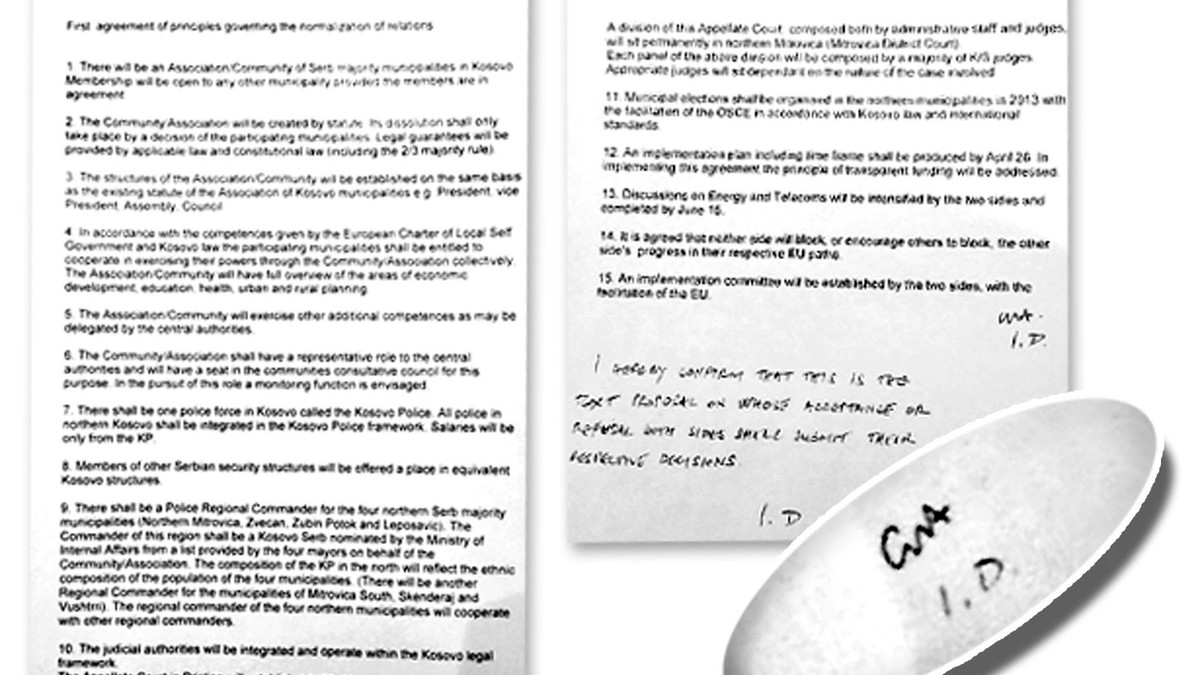 First agreement of principles governing the normalization of relations
1. There will be an Association/Community of Serb majority municipalities in Kosovo
Membership will be open to any other municipality provided the members are in
agreement
2. The Community/Association will be created by statute. Its dissolution shall only
take place by a decision of the participating municipalities. Legal guarantees will be
provided by applicable law and constitutional law (including the 2/3 majority rule)
3. The structures of the Association/Community will be established on the same basis
as the existing statute of the Association of Kosovo municipalities e.g. President, vice
President, Assembly, Council
4. In accordance with the competences given by the European Charter of Local Self
Government and Kosovo law the participating municipalities shall be entitled to
cooperate in exercising their powers through the Community/Association collectively.
The Association/Community will have full overview of the areas of economic
development, education, health, urban and rural planning.
5. The Association/Community will exercise other additional competences as may be
delegated by the central authorities.
6. The Community/Association shall have a representative role to the central
authorities and will have a seat in the communities consultative council for this
purpose. In the pursuit of this role a monitoring function is envisaged
7. There shall be one police force in Kosovo called the Kosovo Police. All police in
northern Kosovo shall be integrated in the Kosovo Police framework. Salaries will be
only from the KP.
8. Members of other Serbian security structures will be offered a place in equivalent
Kosovo structures.
9. There shall be a Police Regional Commander for the four northern Serb majority
municipalities (Northern Mitrovica, Zvecan, Zubin Potok and Leposavic). The
Commander of this region shall be a Kosovo Serb nominated by the Ministry of
Internal Affairs from a list provided by the four mayors on behalf of the
Community/Association. The composition of the KP in the north will reflect the ethnic
composition of the population of the four municipalities. (There will be another
Regional Commander for the municipalities of Mitrovica South, Skenderaj and
Vushtrri). The regional commander of the four northern municipalities will cooperate
with other regional commanders.
10. The judicial authorities will be integrated and operate within the Kosovo legal
framework.
The Appellate Court in
A division of this Appellate Court, composed both by administrative staff and judges,
will sit permanently in northern Mitrovica (Mitrovica District Court)
Each panel of the above division will be composed by a majority of K/S judges
Appropriate judges will sit dependant on the nature of the case involved
11. Municipal elections shall be organised in the northern municipalities in 2013 with
the facilitation of the OSCE in accordance with Kosovo law and international
standards.
12. An implementation plan including time frame shall be produced by April 26. In
implementing this agreement the principle of transparent funding will be addressed.
13. Discussions on Energy and Telecoms will be intensified by the two sides and
completed by June 15.
14. It is agreed that neither side will block, or encourage others to block, the other
side's progress in their respective EU paths.
15. An implementation committee will be established by the two sides, with the
facilitation of the EU.
I. D.
I HEREBY CONFIRM THAT THIS IS THE
TEXT PROPOSAL ON WHOSE ACCEPTANCE OR
REFUSAL BOTH SIDES SHALL SUBMIT THEIR
RESPECTIVE DECISIONS.
I. D
I. D.